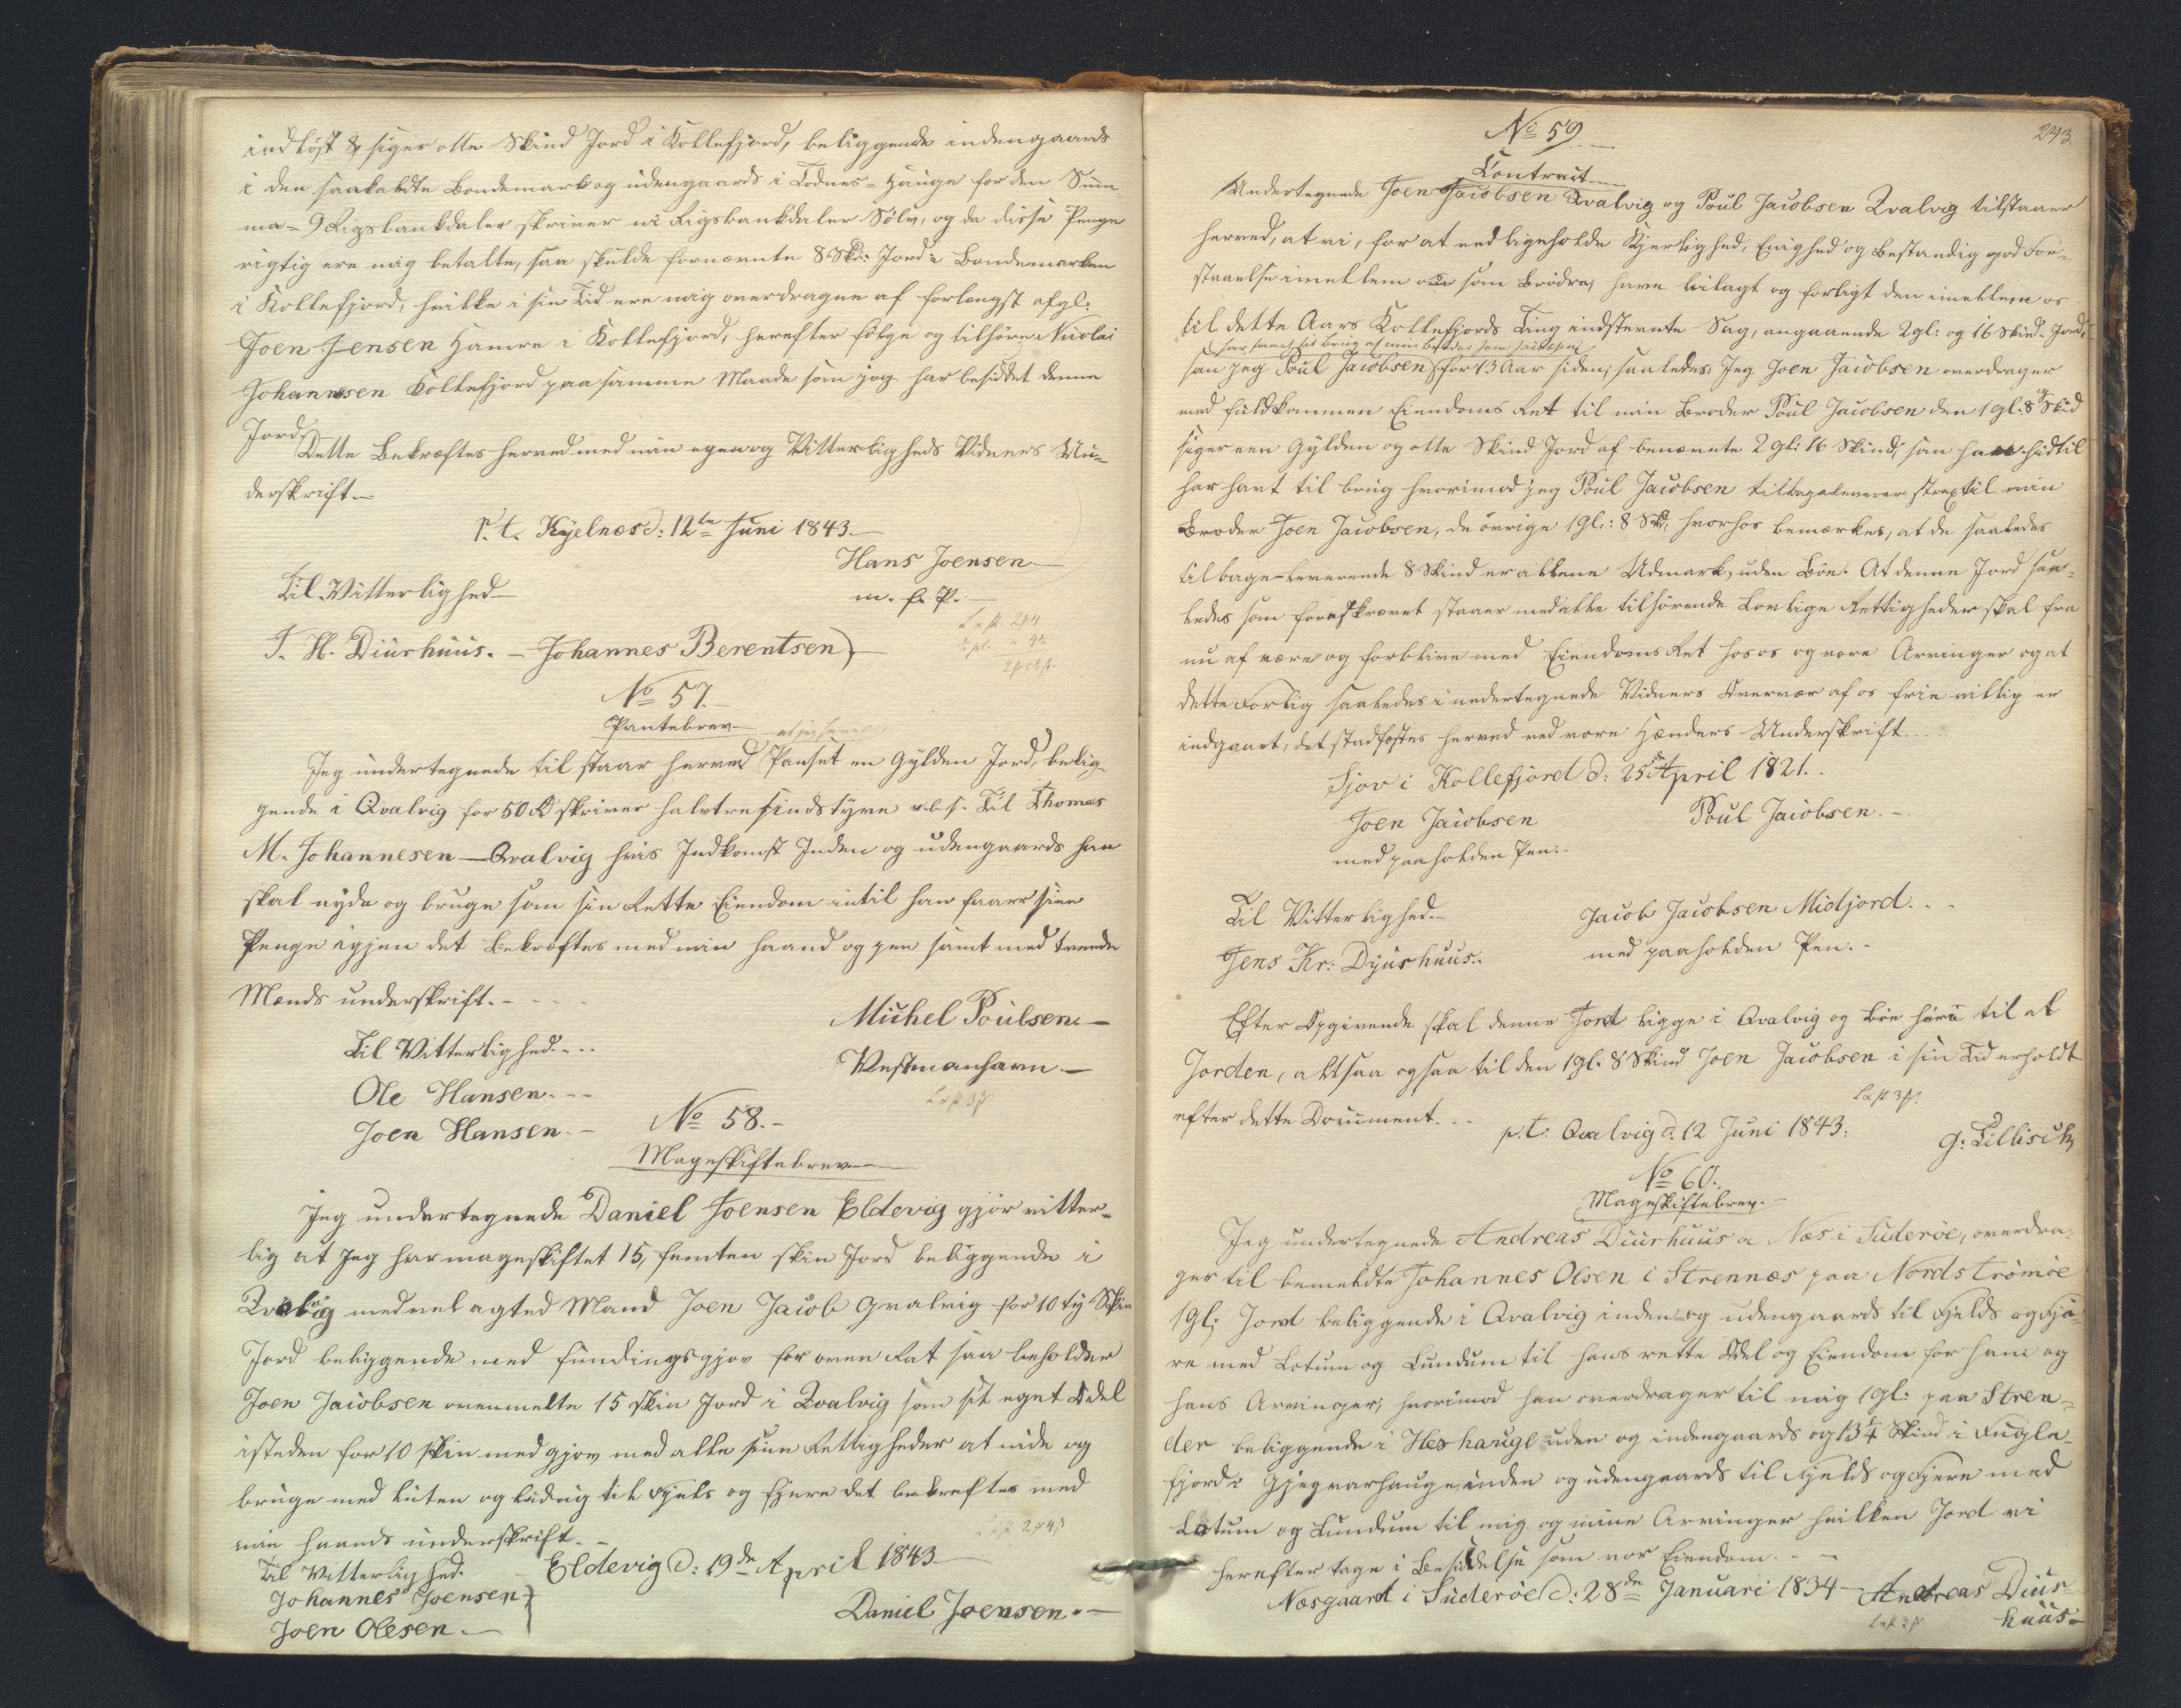 indløst 8 siger otte Skind Jord i Kollefjord, beliggende indengaards
i den saakaldte Bondemark og udengaards i Todnes-Hauge for den Sum-
ma = 9 Rigsbankdaler skriver ni Rigsbankdaler Sølv, og da disse Penge
rigtig ere mig betalte, saa skulde fornævnte 8 Skd: Jord i Bondemarken
i Kollefjord, hvilke i sin Tid ere mig overdragne af forlængst afgl:
Joen Jensen Hamre i Kollefjord, herefter følge og tilhøre Nicolai
Johannesen Kollefjord paa samme Maade som jeg har besiddet denne
Jord.
Dette Bekræftes herved med min egen og Vitterligheds Vidners Un-
derskrift.-
P. t. Kjelnæs d: 12te Juni 1843.-
Hans Joensen
Til Vitterlighed-
m. f. P.
J. H. Diurhuus. - Johannes Berentsen
No 57.-
Pantebrev at jeg haver
Jeg undertegnede til staar herved Panset en Gylden Jord, belig-
gende i Qvalvig for 50 skriver halvtresindstyve r.b.s. Til Thomas
M. Johannesen-Qvalvig hvis Indkomst Inden og udengaards han
skal nyde og bruge som sin Rette Eiendom intil han faar sine
Penge igjen det Bekræftes med min haand og pen samt med tvende
Mænds underskrift.-
Michel Poulsen.-
Til Vitterlighed...
Vestmanhavn.-
Ole Hansen.--
Joen Hansen.-
No 58.-
Mageskiftebrev
Jeg undertegnede Daniel Joensen Eldevig gjør vitter-
lig at Jeg har mageskiftet 15, femten skin Jord beliggende i
Qvalvig med vel agted Mand Joen Jacob Qvalvig for 10 ty Skin
Jord beliggende med fundingsgjov for oven Rat saa beholder
Joen Jacobsen ovenmelte 15 skin Jord i Qvalvig som sit eget Odel
isteden for 10 skin med gjov med alle sine Rettigheder at nide og
bruge med luten og ludvig til Fjels og Fjære det bekreftes med
min haands underskrift.-
Til Vitterlighed.
Eldevig d: 19de April 1843
Johannes Joensen
Daniel Joensen.-
Joen Olesen.-
243.
No 59.
Contract
Undertegnede Joen Jacobsen Qvalvig og Poul Jacobsen Qvalvig tilstaaer
herved, at vi, for at vedligeholde Kjerlighed, Enighed og bestandig god For-
staaelse imellem os som Brødre, have bilagt og forligt den imellem os
til dette Aars Kollefjords Ting indstevnte Sag, angaaende 2 gl: og 16 Skind Jord,
har faaet til brug af min broder Joen Jacobsen
som jeg Poul Jacobsen for 13 Aar siden, saaledes: Jeg Joen Jacobsen overdrager
med fuldkommen Eiendoms Ret til min Broder Poul Jacobsen den 1 gl: 8 Skd
siger een Gylden og otte Skind Jord af benævnte 2 gl: 16 Skind, som han hidtil
har havt til brug hvorimod jeg Poul Jacobsen tilbageleverer strax til min
Broder Joen Jacobsen, de øvrige 1 gl: 8 Sk, hvorhos bemærkes, at de saaledes
tilbage-leverende 8 Skind er allene Udmark, uden Bøe. At denne Jord saa-
ledes som foreskrevet staaer med alle tilhørende Lovlige Rettigheder skal fra
nu af være og forblive med Eiendoms Ret hos os og vore Arvinger og at
dette Forlig saaledes i undertegnede Vidners Overvær af os frie villig er
indgaaet, det stadfæstes herved ved vore Hænders Underskrift.
Sjov i Kollefjord d: 25 April 1821.
Joen Jacobsen
Poul Jacobsen.-
med paaholden Pen.
Til Vitterlighed.-
Jacob Jacobsen Midjord.
Jens Kr: Djurhuus.
med paaholden Pen.-
Efter Opgivende skal denne Jord ligge i Qvalvig og Bøe høre til al
Jorden, altsaa ogsaa til den 1 gl: 8 Skind Joen Jacobsen i sin Tid erholdt
efter dette Document.
p.t. Qvalvig d. 12 Juni 1843:
G: Tillisch
No 60.
Mageskiftebrev.-
Jeg undertegnede Andreas Diurhuus a Næs i Suderøe, overdra-
ger til bemeldte Johannes Olsen i Strennæs paa Nordstrømøe
1 gl: Jord beliggende i Qvalvig inden og udengaards til Fjelds og Fjæ-
re med Lotum og Lundum til hans rette Odel og Eiendom for ham og
hans Arvinger, hvorimod han overdrager til mig 1 gl: paa Stren-
der beliggende i Heshauge uden og indengaards og 13 1/4 Skind i Fugle-
fjord i Gjegvarhauge inden og udengaards til Fjelds og Fjære med
Lotum og Lundum til mig og mine Arvinger hvilken Jord vi
herefter tage i Besiddelse som vor Eiendom.-
Næsgaard i Suderøe d: 28de Januari 1834
Andreas Diur-
huus.-